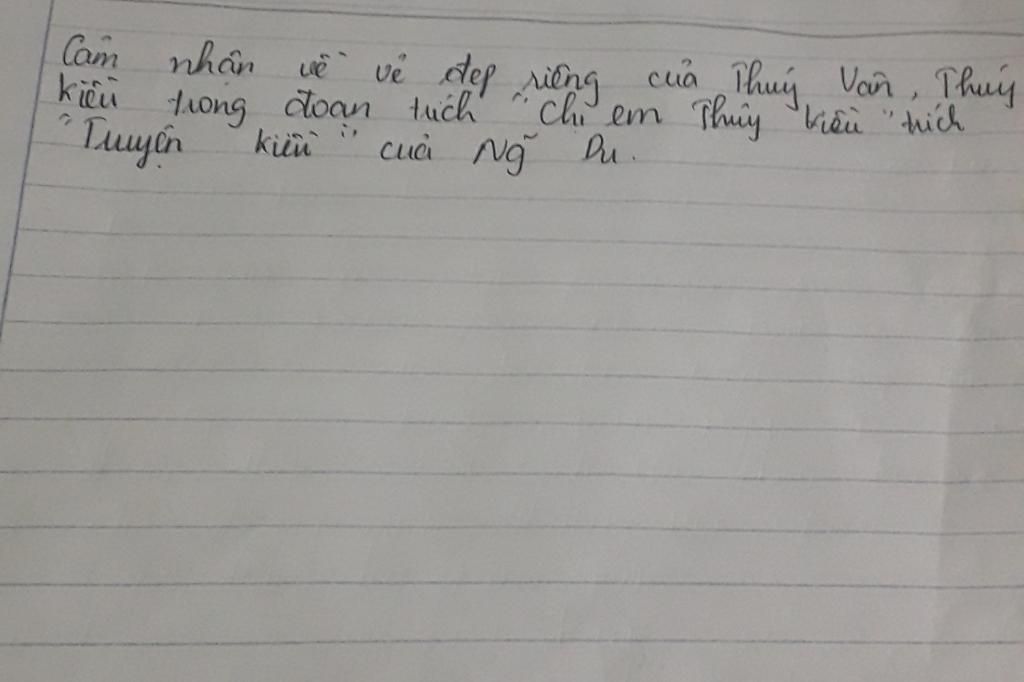 Cảm nhận về vẻ đẹp riêng của Thuý Vân, Thuý
Kiều trong đoạn trích "Chị em Thuý Kiều" trích
"Truyện Kiều" của Ng~ Du.